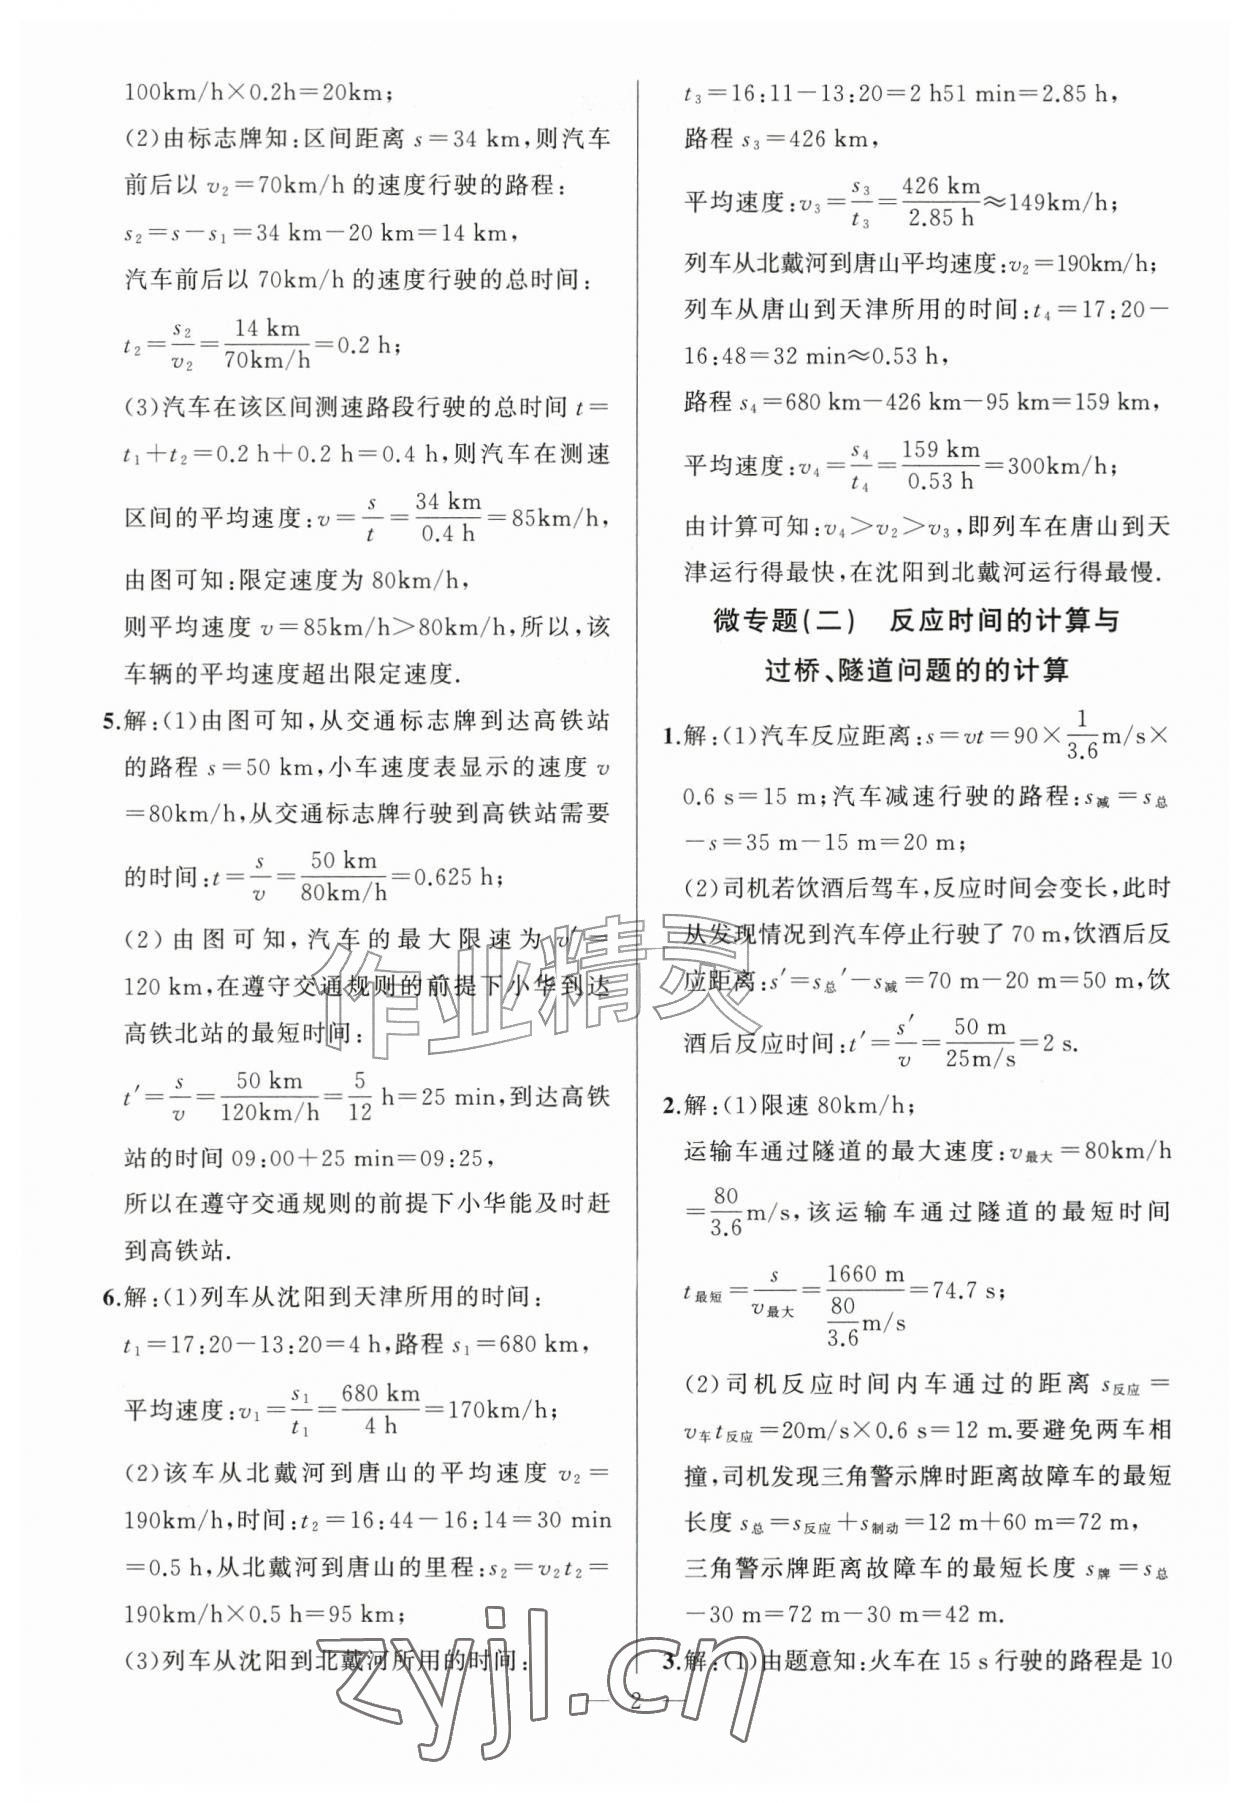 100km/h×0.2h=20km;
(2)由标志牌知:区间距离 s=34 km,则汽车
前后以 v₂=70km/h 的速度行驶的路程:
s₂=s-s₁=34 km-20 km=14 km,
汽车前后以 70km/h 的速度行驶的总时间:
t₂=s₂/v₂=14 km/70km/h=0.2 h;
(3)汽车在该区间测速路段行驶的总时间 t=
t₁+t₂=0.2 h+0.2 h=0.4 h,则汽车在测速
区间的平均速度:v=s/t=34 km/0.4 h=85km/h,
由图可知:限定速度为 80km/h,
则平均速度 v=85km/h>80km/h,所以,该
车辆的平均速度超出限定速度.
5.解:(1)由图可知,从交通标志牌到达高铁站
的路程 s=50 km,小车速度表显示的速度 v
=80km/h,从交通标志牌行驶到高铁站需要
的时间:t=s/v=50 km/80km/h=0.625 h;
(2)由图可知,汽车的最大限速为 v′=
120 km,在遵守交通规则的前提下小华到达
高铁北站的最短时间:
t′=s/v=50 km/120km/h=5/12 h=25 min,到达高铁
站的时间 09:00+25 min=09:25,
所以在遵守交通规则的前提下小华能及时赶
到高铁站.
6.解:(1)列车从沈阳到天津所用的时间:
t₁=17:20-13:20=4 h,路程 s₁=680 km,
平均速度:v₁=s₁/t₁=680 km/4 h=170km/h;
(2)该车从北戴河到唐山的平均速度 v₂=
190km/h,时间:t₂=16:44-16:14=30 min
=0.5 h,从北戴河到唐山的里程:s₂=v₂t₂=
190km/h×0.5 h=95 km;
(3)列车从沈阳到北戴河所用的时间:
t₃=16:11-13:20=2 h51 min=2.85 h,
路程 s₃=426 km,
平均速度:v₃=s₃/t₃=426 km/2.85 h≈149km/h;
列车从北戴河到唐山平均速度:v₂=190km/h;
列车从唐山到天津所用的时间:t₄=17:20-
16:48=32 min≈0.53 h,
路程 s₄=680 km-426 km-95 km=159 km,
平均速度:v₄=s₄/t₄=159 km/0.53 h=300km/h;
由计算可知:v₄>v₂>v₃,即列车在唐山到天
津运行得最快,在沈阳到北戴河运行得最慢.
微专题(二) 反应时间的计算与
过桥、隧道问题的的计算
1.解:(1)汽车反应距离:s=vt=90×1/3.6 m/s×
0.6 s=15 m;汽车减速行驶的路程:s减=s总
-s=35 m-15 m=20 m;
(2)司机若饮酒后驾车,反应时间会变长,此时
从发现情况到汽车停止行驶了 70 m,饮酒后反
应距离:s′=s总′-s减=70 m-20 m=50 m,饮
酒后反应时间:t′=s′/v=50 m/25m/s=2 s.
2.解:(1)限速 80km/h;
运输车通过隧道的最大速度:v最大=80km/h
=80/3.6 m/s,该运输车通过隧道的最短时间
t最短=s/v最大=1660 m/(80/3.6 m/s)=74.7 s;
(2)司机反应时间内车通过的距离 s反应=
v车t反应=20m/s×0.6 s=12 m.要避免两车相
撞,司机发现三角警示牌时距离故障车的最短
长度 s总=s反应+s制动=12 m+60 m=72 m,
三角警示牌距离故障车的最短长度 s牌=s总
-30 m=72 m-30 m=42 m.
3.解:(1)由题意知:火车在 15 s 行驶的路程是 10
2
作业精灵
zyjl.cn